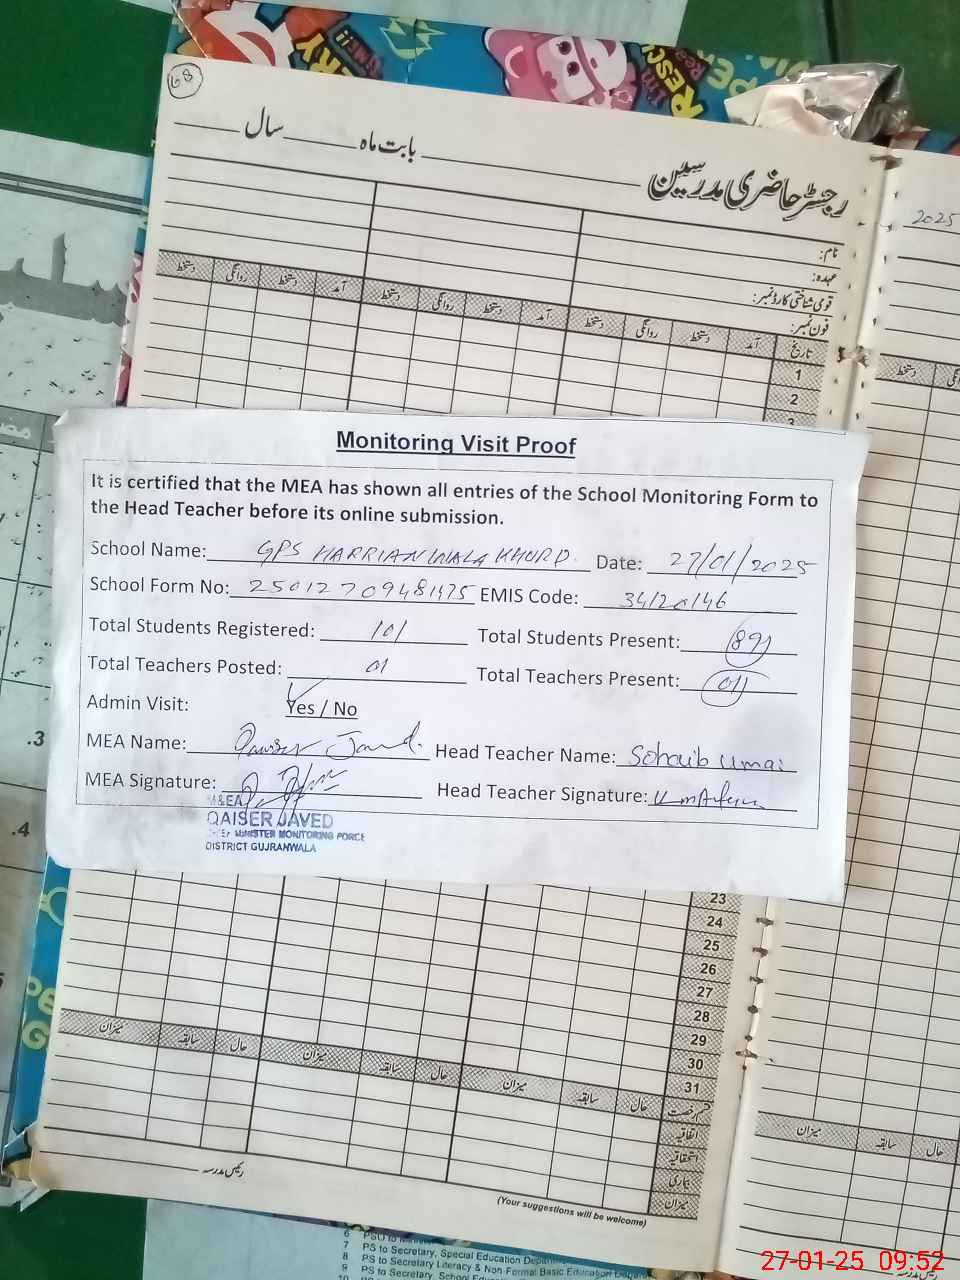 68
بابت ماہ سال
رجسٹر حاضری مدرسین
2025
نام:
عہدہ:
قومی شناختی کارڈ نمبر:
فون نمبر:
تاریخ آمد دستخط روانگی دستخط آمد دستخط روانگی دستخط آمد دستخط روانگی دستخط
1
2
3
Monitoring Visit Proof
It is certified that the MEA has shown all entries of the School Monitoring Form to
the Head Teacher before its online submission.
School Name: GPS HARRIANWALA KHURD. Date: 27/01/2025
School Form No: EMIS Code: 34120146
Total Students Registered: 101 Total Students Present: 89
Total Teachers Posted: 01 Total Teachers Present: 01
Admin Visit: Yes / No
MEA Name: Qaiser Javed. Head Teacher Name: Sohaib Umar
MEA Signature: Head Teacher Signature:
M&EA
QAISER JAVED
CHIEF MINISTER MONITORING FORCE
DISTRICT GUJRANWALA
.3
.4
23
24
25
26
27
28
29
30
31
قسم رخصت حال سابقہ میزان حال سابقہ میزان حال سابقہ میزان
اتفاقیہ
استحقاقیہ
بیماری
میزان
حال سابقہ میزان
رئیس مدرسہ
(Your suggestions will be welcome)
6 PSO to
7 PS to Secretary, Special Education
8 PS to Secretary Literacy & Non-Formal Basic Education
9 PS to Secretary, School
10
27-01-25 09:52